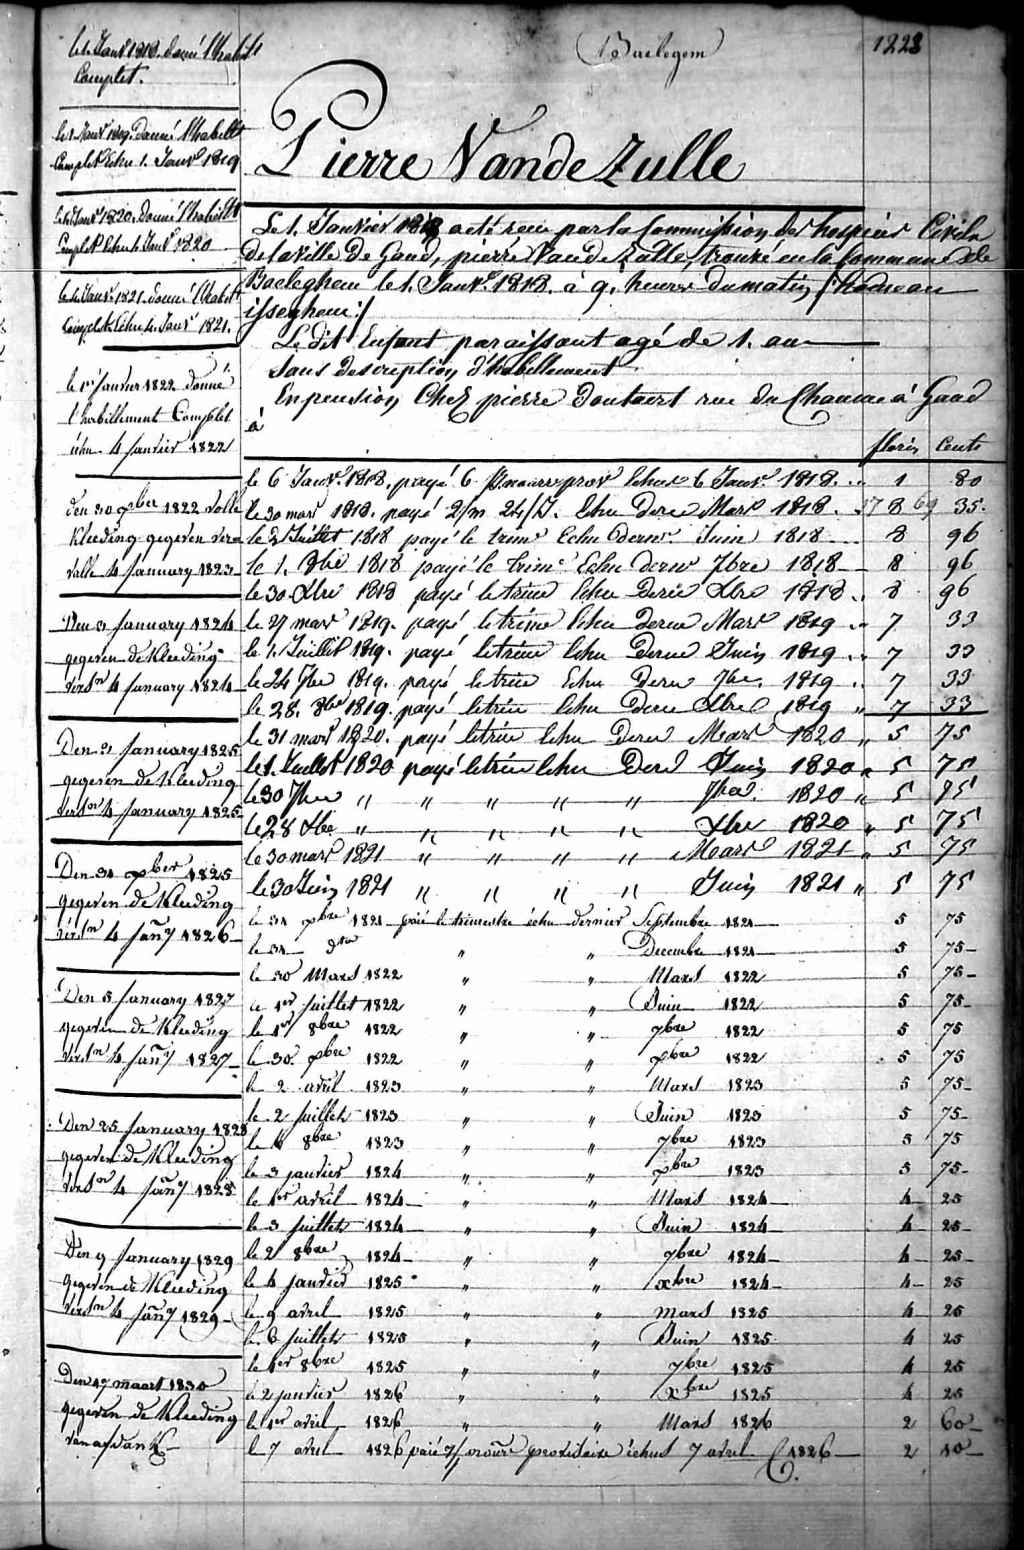 Baelegem
1223
Pierre Vande Zulle
le 1. Janvr 1818. donné l'habill
Complet.
le 1. Janvr 1819. Donné l'habillt
Complet Echu 1. Janvr 1819
le 1. Janvr 1820. Donné l'habillt
Complet Echu 1. Janvr 1820
le 1. Janvr 1821. donné l'habillt
Complet Echu 1. Janvr 1821.
le 1er Janvier 1822 donné
l'habillement Complet
échu 4 Janvier 1822
den 30 xber 1822 volle
Kleeding gegeven ver
valle 4 January 1823
Den 3 January 1824
gegeven de Kleeding
4 January 1824
Den 21 January 1825
gegeven de Kleeding
4 January 1825
Den 31 xber 1825
gegeven de Kleeding
4 Jany 1826
Den 5 January 1827
gegeven de Kleeding
4 Jany 1827
Den 25 January 1828
gegeven de Kleeding
4 Jany 1828
Den 9 January 1829
gegeven de Kleeding
4 Jany 1829
Den 17 maart 1830
gegeven de Kleeding
Le 1. Janvier 1818 a été reçu par la Commission des hospices Civils
de la ville de Gand, pierre Van de Zulle, trouvé en la Commune de
Baeleghem le 1. Janvr. 1818. à 9. heures du matin
isseghem:/
Le dit Enfant paraissant agé de 1. an
Sans description d'habillement
En pension Chez pierre Doutaert rue du Chaume à Gand
à
florin Cents
le 6 Janvr. 1818. payé 6 Echus 6 Janvr 1818. 1 80
le 30 mars 1818. payé Echu Derer Mars 1818. 17 8 69 35.
le 2 Juillet 1818 payé le trime Echu dernr. Juin 1818 8 96
le 1. 8bre 1818 payé le trime Echu dernr 7bre 1818 8 96
le 30 Xbre 1818 payé le trime Echu Derer Xbre 1818 8 96
le 27 mars 1819. payé le trime Echu Derer Mars 1819 7 33
le 1. Juillet 1819. payé le trime Echu Derer Juin 1819 7 33
le 24 7bre 1819. payé le trime Echu Derer 7bre. 1819 7 33
le 28. Xbre 1819. payé le trime Echu Derer Xbre 1819 " 7 33
le 31 mars 1820. payé le trime Echu Derer Mars 1820 " 5 75
le 1. Juillet 1820 payé le trime Echu Derer Juin 1820 " 5 75
le 30 7bre " " " " " 7bre. 1820 " 5 75
le 28 Xbre " " " " " Xbre 1820 " 5 75
le 30 mars 1821 " " " " Mars 1821 " 5 75
le 30 Juin 1821 " " " " Juin 1821 " 5 75
le 31 1821 paié le trimestre échu dernier Septembre 1821 5 75
le 31 " " Decembre 1821 5 75
le 30 Mars 1822 " " Mars 1822 5 75
le 1er Juillet 1822 " " Juin 1822 5 75
le 1er 8bre 1822 " " 7bre 1822 5 75
le 30 xbre 1822 " " xbre 1822 5 75
le 2 avril 1823 " " Mars 1823 5 75
le 2 Juillet 1823 " " Juin 1823 5 75
le 8bre 1823 " " 7bre 1823 5 75
le 3 janvier 1824 " " xbre 1823 5 75
le 1er avril 1824 " " Mars 1824 4 25
le 3 Juillet 1824 " " Juin 1824 4 25
le 2 8bre 1824 " " 7bre 1824 4 25
le 4 janvier 1825 " " xbre 1824 4 25
le 9 avril 1825 " " mars 1825 4 25
le 6 Juillet 1825 " " Juin 1825 4 25
le 1er 8bre 1825 " " 7bre 1825 4 25
le 2 janvier 1826 " " xbre 1825 4 25
le 1er avril 1826 " " Mars 1826 2 60
le 7 avril 1826 paié 7/ échus 7 avril 1826 2 10